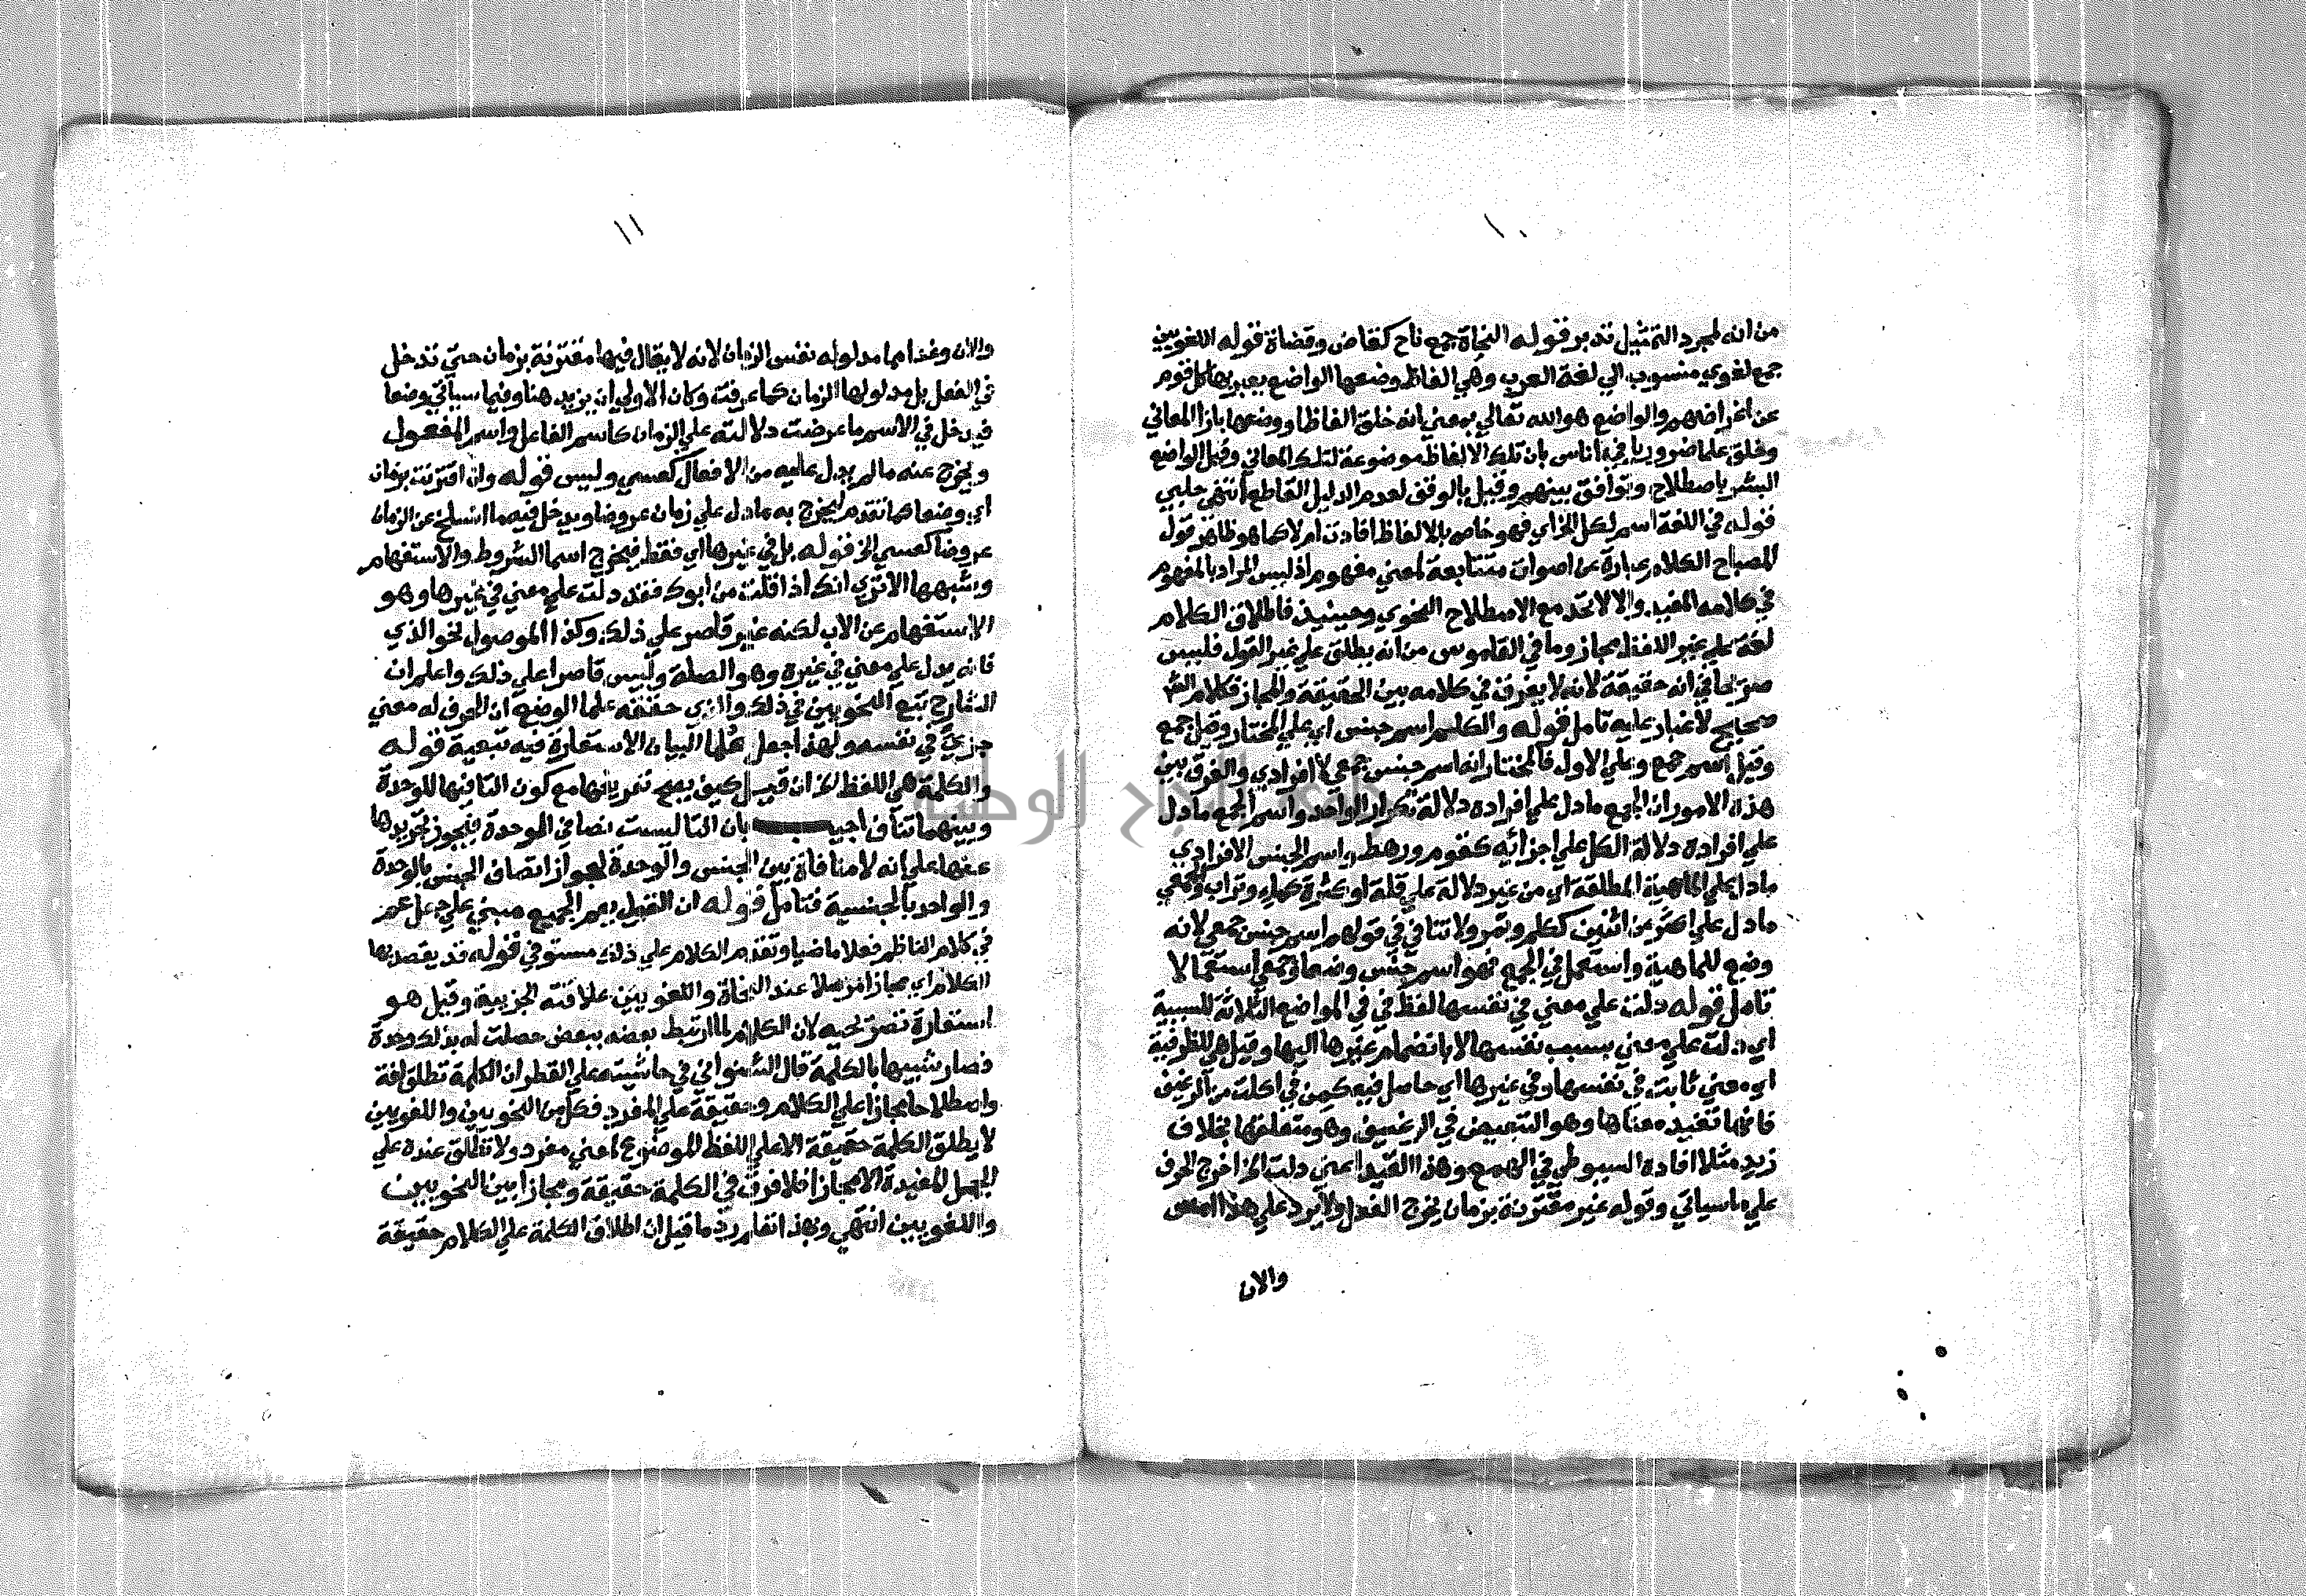 ١٠
من انه لمجرد التمثيل تدبر قوله النحاة جمع ناح كقاض وقضاة قوله اللغويين
جمع لغوي منسوب الي لغة العرب وهي الفاظ وضعها الواضع يعبر بها كل قوم
عن اغراضهم والواضع هو الله تعالي بمعني انه خلق الفاظا ووضعها بازا المعاني
وخلق علما ضروريا في اناس بان تلك الالفاظ موضوعة لتلك المعاني وقيل الواضع
البشر باصطلاح وتوافق بينهم وقيل بالوقف لعدم الدليل القاطع انتهي حلبي
قوله في اللغة اسم لكل الخ اي فهو خاص بالالفاظ افادت ام لا كما هو ظاهر قول
المصباح الكلام عبارة عن اصوات متتابعة لمعني مفهوم اذ ليس المراد بالمفهوم
في كلامه المفيد والا لاتحد مع الاصطلاح النحوي وحينيذ فاطلاق الكلام
لغة علي غير اللفظ مجاز وما في القاموس من انه يطلق علي غير القول فليس
صريحا في انه حقيقة لانه لا يفرق في كلامه بين الحقيقة والمجاز فكلام الش
صحيح لا غبار عليه تامل قوله والكلم اسم جنس اي علي المختار وقيل جمع
وقيل اسم جمع وعلي الاول فالمختار انه اسم جنس جمعي لا افرادي والفرق بين
هذه الامور ان الجمع ما دل علي افراده دلالة تكرار الواحد واسم الجمع ما دل
علي افراده دلالة الكل علي اجزائه كقوم ورهط واسم الجنس الافرادي
ما دل علي الماهية المطلقة اي من غير دلالة علي قلة او كثرة كماء وتراب والجمعي
ما دل علي اكثر من اثنين ككلم وتمر ولا تنافي في قولهم اسم جنس جمعي لانه
وضع للماهية واستعمل في الجمع فهو اسم جنس وضعا وجمعي استعمالا
تامل قوله دلت علي معني في نفسها لفظ في في المواضع الثلاثة للسببية
اي دلت علي معني بسبب نفسها لا بانضمام غيرها اليها وقيل هي للظرفية
اي معني ثابت في نفسها وفي غيرها اي حاصل فيه كمن في اكلت من الرغيف
فانها تفيد معناها وهو التبعيض في الرغيف وهو متعلقها بخلاف
زيد مثلا افاده السيوطي في الهمع وهذا القيد اعني دلت الخ اخرج الحرف
علي ما سياتي وقوله غير مقترنة بزمان يخرج الفعل ولا يرد علي هذا امس
والان
١١
والان وغدا مما مدلوله نفس الزمان لانه لا يقال فيها مقترنة بزمان حتي تدخل
في الفعل بل مدلولها الزمان كما عرفت وكان الاولي ان يزيد هنا وفيما سياتي وضعا
فيدخل في الاسم ما عرضت دلالته علي الزمان كاسم الفاعل واسم المفعول
ويخرج عنه ما لم يدل عليه من الافعال كعسي وليس قوله وان اقترنت بزمان
اي وضعا كما تقدم ليخرج به ما دل علي زمان عروضا ويدخل فيه ما انسلخ عن الزمان
عروضا كعسي الخ قوله بل في غيرها اي فقط فيخرج اسما الشروط والاستفهام
وشبهها الا تري انك اذا قلت من ابوك فقد دلت علي معني في غيرها وهو
الاستفهام عن الاب لكنه غير قاصر علي ذلك وكذا الموصول نحو الذي
فانه يدل علي معني في غيره وهو الصلة وليس قاصرا علي ذلك واعلم ان
الشارح تبع النحويين في ذلك والذي حققه علما الوضع ان الحرف له معني
جزئي في نفسه ولهذا جعل علما البيان الاستعارة فيه تبعية قوله
والكلمة هي اللفظ الخ ان قيل كيف يصح تعريفها مع كون التا فيها للوحدة
وبينهما تناف اجيب بان التا ليست نصا في الوحدة فيجوز تجريدها
عنها علي انه لا منافاة بين الجنس والوحدة لجواز اتصاف الجنس بالوحدة
والواحد بالجنسية فتامل قوله ان القول يعم الجميع مبني علي جعل عم
في كلام الناظم فعلا ماضيا وتقدم الكلام علي ذلك مستوفي قوله قد يقصد بها
الكلام اي مجازا مرسلا عند النحاة واللغويين علاقته الجزيية وقيل هو
استعارة تصريحية لان الكلام لما ارتبط بعضه ببعض حصلت له بذلك وحدة
فصار شبيها بالكلمة قال الشنواني في حاشيته علي القطر ان الكلمة تطلق لغة
واصطلاحا مجازا علي الكلام وحقيقة علي المفرد فكل من النحويين واللغويين
لا يطلق الكلمة حقيقة الا علي اللفظ الموضوع لمعني مفرد ولا تطلق عنده علي
الجمل المفيدة الا مجازا فلا فرق في الكلمة حقيقة ومجازا بين النحويين
واللغويين انتهي وبهذا تعلم رد ما قيل ان اطلاق الكلمة علي الكلام حقيقة